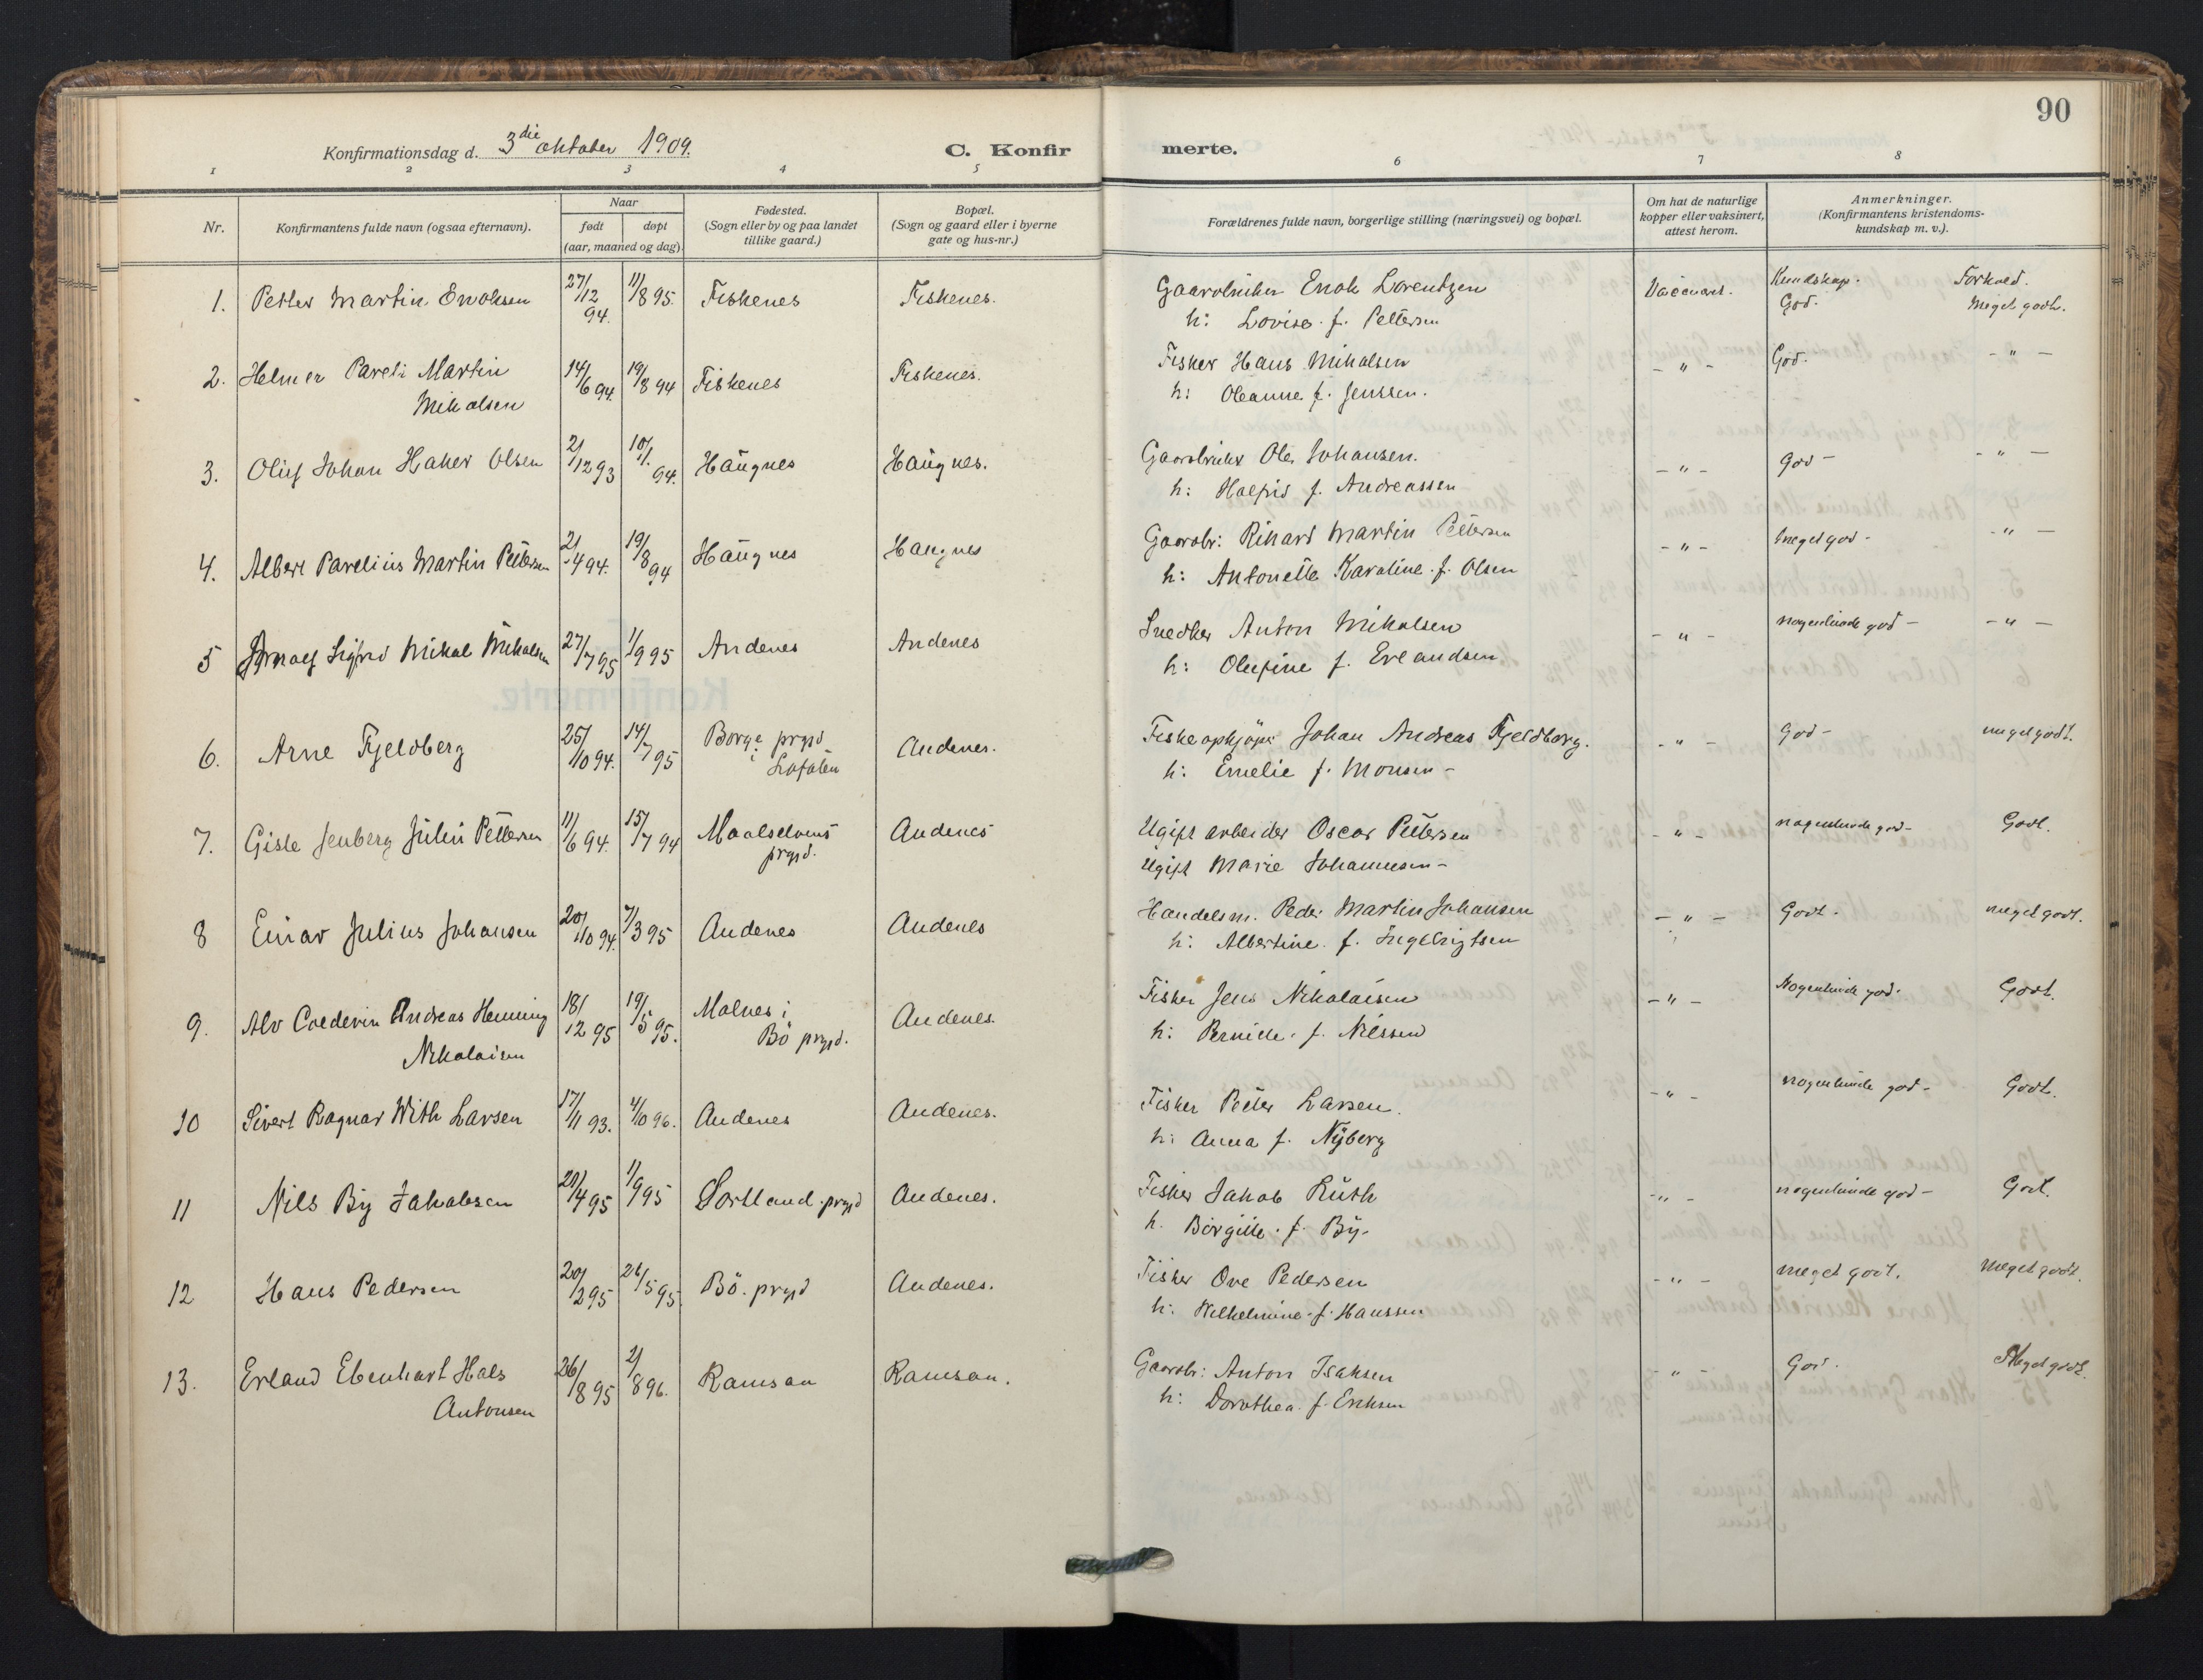 90
Konfirmationsdag d. 3die oktober 1909.
C. Konfir
merte.
1 2 3 4 5 6 7 8
Nr.
Konfirmantens fulde navn (ogsaa efternavn).
Naar
født døpt
(aar, maaned og dag).
Fødested.
(Sogn eller by og paa landet
tillike gaard.)
Bopæl.
(Sogn og gaard eller i byerne
gate og hus-nr.)
Forældrenes fulde navn, borgerlige stilling (næringsvei) og bopæl.
Om hat de naturlige
kopper eller vaksinert,
attest herom.
Anmerkninger.
(Konfirmantens kristendoms-
kundskap m. v.).
Kundskap. Forhold.
1. Petter Martin Enoksen 27/12 94. 11/8 95. Fiskenes Fiskenes. Gaardbruker Enok Lorentzen Vaccinert. God. Meget godt.
h: Lovise f. Pettersen
2. Helmer Pareli Martin 14/6 94. 19/8 94 Fiskenes Fiskenes. Fisker Hans Mikalsen - " - God. - " -
Mikalsen h: Oleanna f. Jenssen.
3. Oluf Johan Haker Olsen 2/12 93 10/1. 94. Haugnes Haugnes. Gaardbruker Ole Johansen. - " - God - - " -
h: Halfrid f. Andreassen
4. Albert Parelius Martin Pettersen 2/4 94. 19/8 94 Haugnes Haugnes Gaardbr: Rikard Martin Pettersen - " - Meget god - - " -
h: Antonette Karoline f. Olsen
5 Arnolf Sigfred Mikal Mikalsen 27/7 95 1/9 95 Andenes Andenes Snedker Anton Mikalsen - " - nogenlunde god - - " -
h: Olufine f. Erlandsen
6. Arne Fjeldberg 25/10 94. 14/7 95 Borge prgjd Andenes. Fiskeopkjøper Johan Andreas Fjeldborg. - " - God - meget godt.
i Lofoten h: Emelie f. Monsen -
7. Gisle Jenberg Juliu Pettersen 11/6 94. 15/7 94 Maalselvens Andenes Ugift arbeider Oscar Pettersen - " - nogenlunde god - Godt.
prgjd. Ugift Marie Johannesen -
8 Einar Julius Johansen 20/10 94. 7/3 95 Andenes Andenes Handelsm. Peder Martin Johansen - " - Godt. meget godt.
h: Albertine f. Ingebrigtsen
9. Alv Coldevin Andreas Henning 18/12 95 19/5 95. Malnes i Andenes. Fisker Jens Nikolaisen - " - Nogenlunde god. Godt.
Nikolaisen Bö prgjd. h: Pernille f. Nilssen
10 Sivert Ragnar With Larsen 17/11 93. 4/10 96. Andenes Andenes. Fisker Peder Larsen. - " - nogenlunde god - Godt.
h: Anna f. Nyberg
11 Nils By Jakobsen 21/4 95 1/9 95 Sortland prgjd Andenes. Fisker Jakob Ruth - " - nogenlunde god - Godt.
h. Börgitte f. By -
12 Hans Pedersen 20/2 95 26/5 95. Bö. prgjd Andenes. Fisker Ove Pedersen - " - meget godt. meget godt.
h: Wilhelmine f. Hanssen
13. Erland Ebenhart Hals 26/8 95 2/8 96. Ramsaa Ramsaa. Gaardbr: Anton Isaksen - " - God. Meget godt.
Antonsen h: Dorothea f. Eriksen